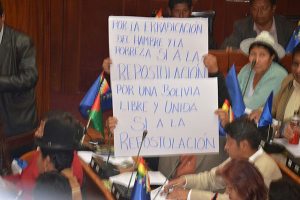 POR LA ERRADICACION
DEL HAMBRE Y LA
POBREZA SI A LA
REPOSTULACIÓN
POR UNA BOLIVIA
LIBRE Y UNIDA
SI A LA
REPOSTULACIÓN